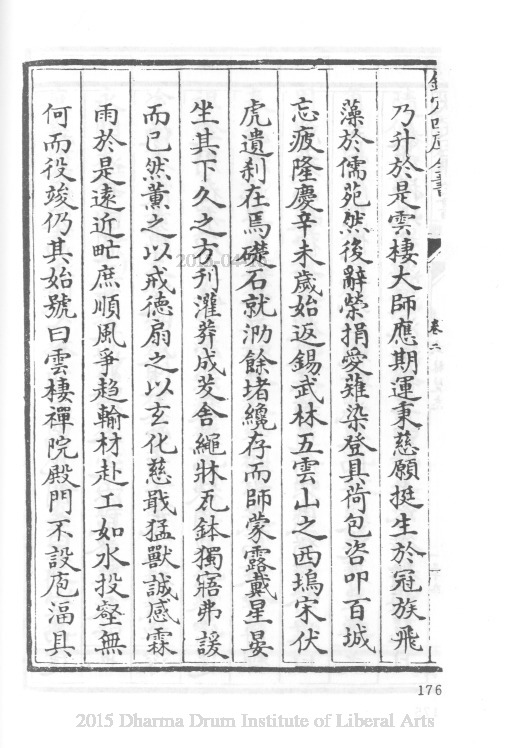 欽定四庫全書
卷二
乃升於是雲棲大師應期運秉慈願挺生於冠族飛
藻於儒苑然後辭榮捐愛薙染登具荷包咨叩百城
忘疲隆慶辛未歲始返錫武林五雲山之西塢宋伏
虎遺刹在焉礎石就泐餘堵纔存而師蒙露戴星晏
坐其下久之方刋灌莽成茇舍繩牀瓦鉢獨寤弗諼
而已然薰之以戒德扇之以玄化慈戢猛獸誠感霖
雨於是遠近甿庶順風爭趋輸材赴工如水投壑無
何而役竣仍其始號曰雲棲禪院殿門不設庖湢具
176
2015 Dharma Drum Institute of Liberal Arts